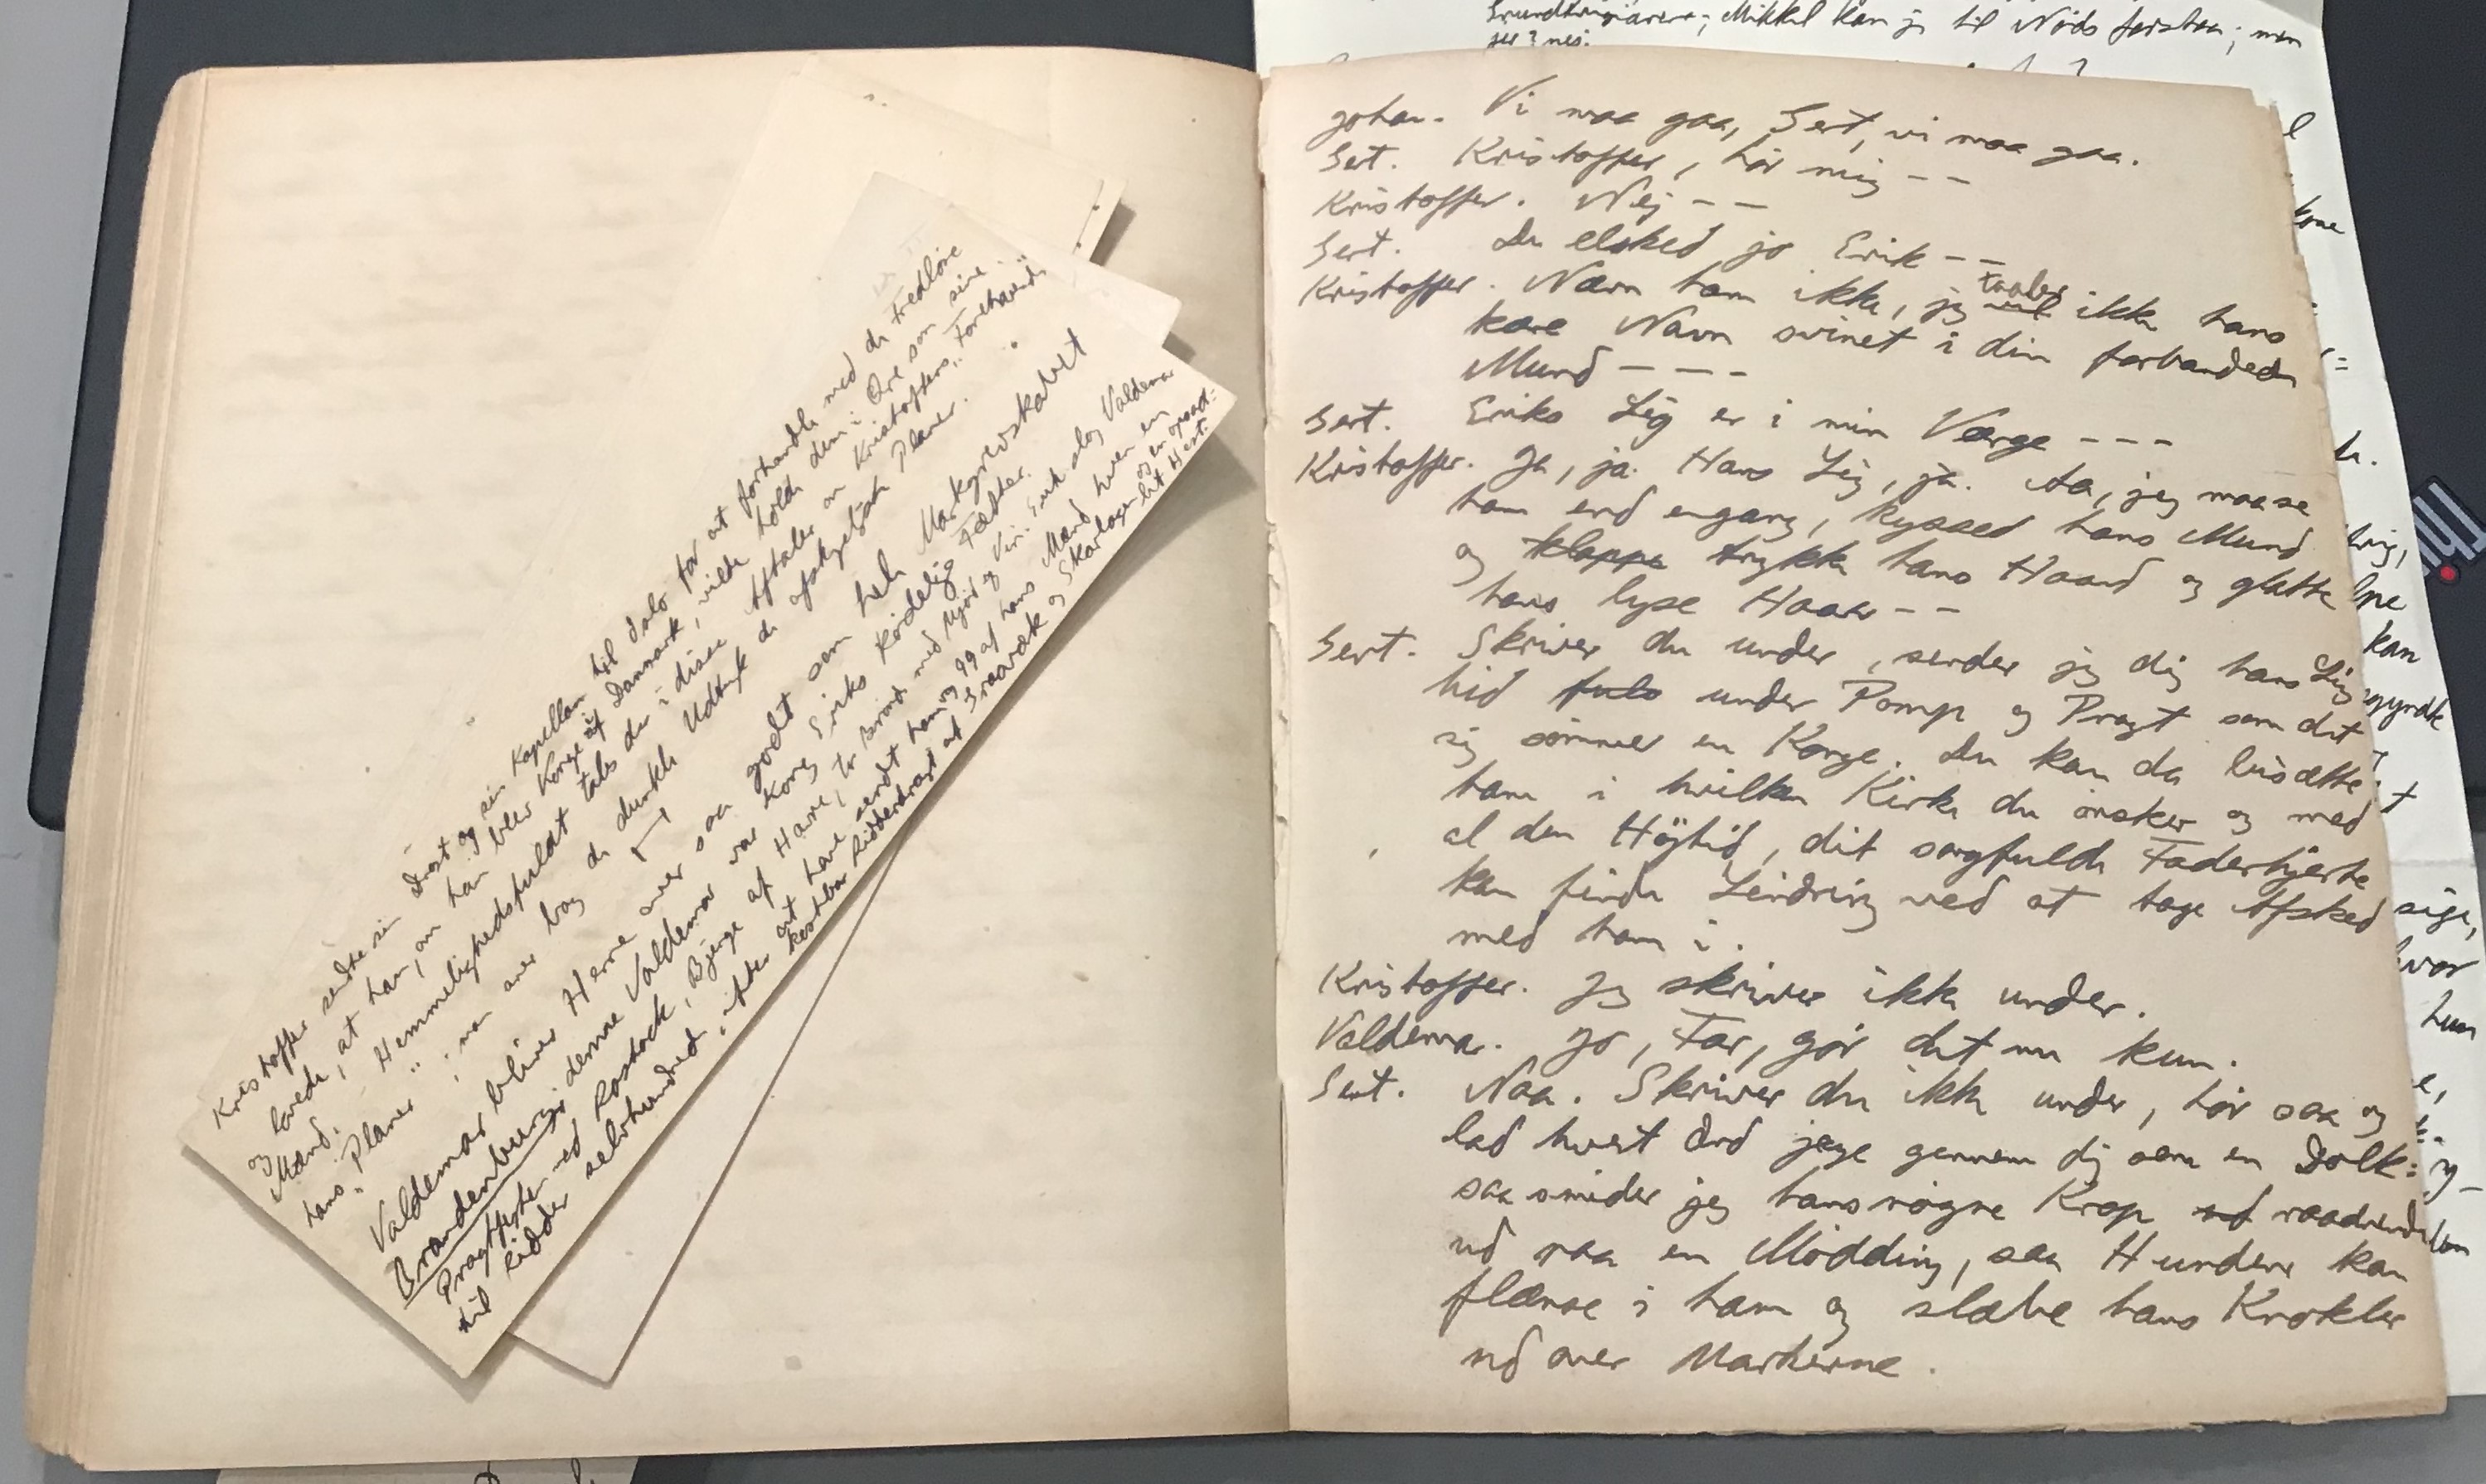 Kristoffer sendte sin Drost og sin Kapellan til Oslo for at forhandle med de Fredløse
og lovede, at han, om han blev Konge af Danmark, vilde holde dem i Ære som sine
Mænd. - Hemmelighedsfuldt tales der i disse Aftaler om Kristoffers "Forehavende"
hans "Planer"; man aner bag de dunkle Udtryk de afskyeligste Planer.
Valdemar bliver Herre over saa godt som hele Markgrevskabet
Brandenburg; denne Valdemar var Kong Eriks kødelige Fætter.
Pragtfesten ved Rostock, Bjerge af Havre, to Brønde med Mjød og Vin. Erik slog Valdemar
til Ridder og 99 af hans Mænd hver en
selvhundred, efter at have sendt ham og en opsad-
kostbar Ridderdragt af Graaværk og Skarlagen let Hest.
Grundtvigianere; Mikkel kan jo til Nöds forstaa; men
Johan. Vi maa gaa, Gert, vi maa gaa.
Gert. Kristoffer, hör mig - -
Kristoffer. Nej - -
Gert. Du elsked jo Erik - -
Kristoffer. Nævn ham ikke, jeg vil taaler ikke hans
kære Navn svinet i din forbandede
Mund - - -
Gert. Eriks Lig er i min Værge - - -
Kristoffer. Ja, ja. Hans Lig, ja. Aa, jeg maa se
ham end engang, kysse hans Mund
og klappe trykke hans Haand og glatte
hans lyse Haar - -
Gert. Skriver du under, sender jeg dig hans Lig
hid under Pomp og Pragt som det
sig sömmer en Konge. Du kan da bisætte
ham i hvilken Kirke du önsker og med
al den Höjtid, dit sorgfulde Faderhjerte
kan finde Lindring ved at tage Afsked
med ham i.
Kristoffer. Jeg skriver ikke under.
Valdemar. Jo, Far, gör det nu kun.
Gert. Naa. Skriver du ikke under, hör saa og
lad hvert Ord jage gennem dig som en Dolk:
saa smider jeg hans nögne Krop ud raadnende
ud paa en Mödding, saa Hundene kan
flænse i ham og slæbe hans Knokler
ud over Markerne.